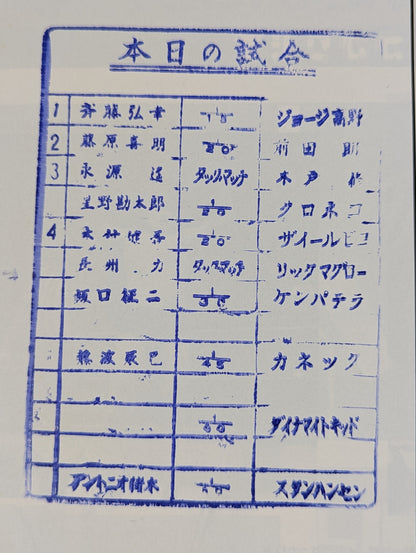 本日の試合
1 斉藤弘幸 1/10 ジョージ高野
2 藤原喜明 1/20 前田
3 永源遙 タッグマッチ 木戸修
星野勘太郎 1/20 クロネコ
4 木村健吾 1/20 ザイールビコ
長州力 タッグマッチ リックマグロー
坂口征二 1/30 ケンパテラ
藤波辰巳 1/45 カネック
ダイナマイトキッド
アントニオ猪木 スタンハンセン